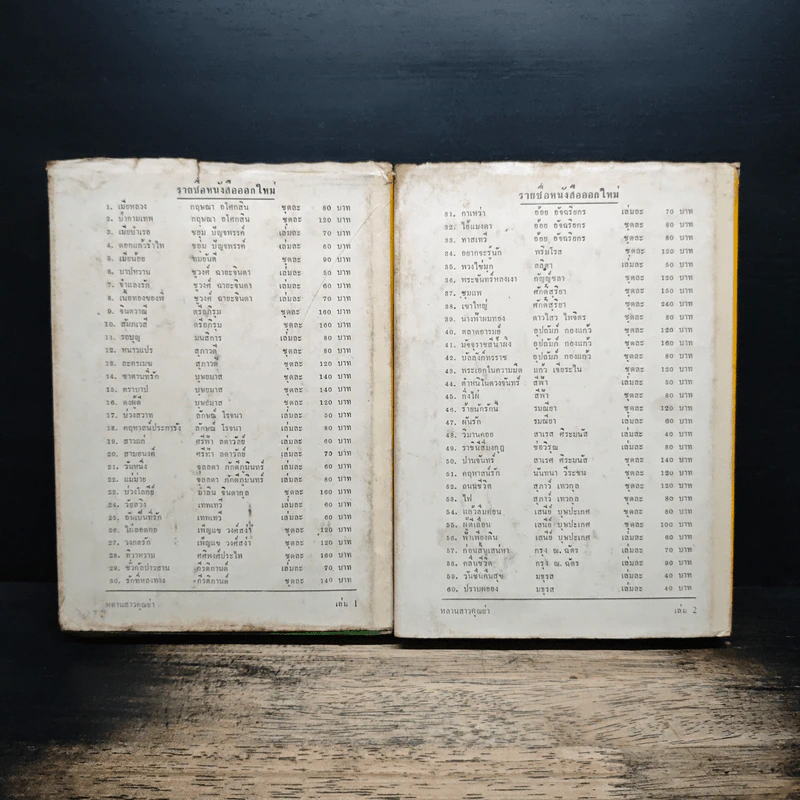 รายชื่อหนังสือออกใหม่
1. เมียหลวง กฤษณา อโศกสิน ชุดละ 80 บาท
2. น้ำกามเทพ กฤษณา อโศกสิน ชุดละ 120 บาท
3. เมียบำเรอ ชอุ่ม ปัญจพรรค์ เล่มละ 70 บาท
4. ดอกแก้วรำไพ ชอุ่ม ปัญจพรรค์ เล่มละ 60 บาท
5. เมียน้อย ทมยันตี ชุดละ 90 บาท
6. บาปหวาน ชูวงศ์ ฉายะจินดา เล่มละ 50 บาท
7. จำเลยรัก ชูวงศ์ ฉายะจินดา เล่มละ 60 บาท
8. เนื้อทองของพี่ ชูวงศ์ ฉายะจินดา เล่มละ 70 บาท
9. จินตวาณี ตรีอภิรุม ชุดละ 160 บาท
10. สัมภเวสี ตรีอภิรุม ชุดละ 160 บาท
11. รอยบุญ มนสิการ เล่มละ 80 บาท
12. ทนาวแปร สุภาวดี ชุดละ 80 บาท
13. ละครเมฆ สุภาวดี ชุดละ 120 บาท
14. ซาตานที่รัก บุษยมาส ชุดละ 140 บาท
15. ตราบาป บุษยมาส ชุดละ 140 บาท
16. ดงผู้ดี บุษยมาส ชุดละ 120 บาท
17. บ่วงสวาท ลักษณ์ โรจนา เล่มละ 50 บาท
18. คฤหาสน์ปะการัง ลักษณ์ โรจนา เล่มละ 80 บาท
19. สาวแก่ ศรีฟ้า ลดาวัลย์ เล่มละ 60 บาท
20. สามอนงค์ ศรีฟ้า ลดาวัลย์ เล่มละ 70 บาท
21. วันหนึ่ง ชลลดา ภักดีภูมินทร์ เล่มละ 60 บาท
22. แม่ม่าย ชลลดา ภักดีภูมินทร์ เล่มละ 80 บาท
23. บ่วงโลกีย์ ชุดละ 160 บาท
24. รอยลวง เทพเทวี เล่มละ 60 บาท
25. อันเป็นที่รัก เทพเทวี เล่มละ 60 บาท
26. ไม้ลอดกอ เพ็ญแข วงศ์สง่า ชุดละ 120 บาท
27. วงกตรัก เพ็ญแข วงศ์สง่า ชุดละ 120 บาท
28. ทิวาหวาม ศศิพงศ์ประไพ ชุดละ 160 บาท
29. กีรติกานต์ เล่มละ 70 บาท
30. รักที่หลงทาง กีรติกานต์ ชุดละ 140 บาท
หลานสาวคุณย่า เล่ม 1
รายชื่อหนังสือออกใหม่
31. กาเหว่า อ้อย อัจฉริยกร เล่มละ 70 บาท
32. ไอ้แมงดา อ้อย อัจฉริยกร ชุดละ 80 บาท
33. ทาสเทวี อ้อย อัจฉริยกร ชุดละ 80 บาท
34. อยากจะรู้นัก พริมโรส ชุดละ 120 บาท
35. พวงไข่มุก ลลิตา เล่มละ 50 บาท
36. พระจันทร์หลงเงา กัญญ์ชลา ชุดละ 120 บาท
37. ชุมแพ ศักดิ์สุริยา ชุดละ 150 บาท
38. เขาใหญ่ ศักดิ์สุริยา ชุดละ 240 บาท
39. นางฟ้าผมทอง ดาวไสว ไพจิตร ชุดละ 80 บาท
40. ตลาดอารมย์ อุปถัมภ์ กองแก้ว ชุดละ 120 บาท
41. มัจจุราชสีน้ำผึ้ง อุปถัมภ์ กองแก้ว ชุดละ 160 บาท
42. บัลลังก์ทรราช อุปถัมภ์ กองแก้ว ชุดละ 80 บาท
43. พระเอกในความมืด แก้ว เจียระไน ชุดละ 80 บาท
44. ตำหนักดวงจันทร์ สีฟ้า เล่มละ 50 บาท
45. กิ่งไผ่ สีฟ้า ชุดละ 80 บาท
46. ร้ายนักรักนี้ รมณียา ชุดละ 120 บาท
47. ฝันรัก รมณียา เล่มละ 60 บาท
48. วิมานคอย สาเรศ ศิระมนัส เล่มละ 40 บาท
49. ราชินีสีชมพู ช่อวิรุณ ชุดละ 80 บาท
50. ปานจันทร์ สาเรศ ศิระมนัส ชุดละ 140 บาท
51. คฤหาสน์รัก นันทนา วีระชน ชุดละ 120 บาท
52. ถนนชีวิต สุภาว์ เทวกุล ชุดละ 120 บาท
53. ไฟ สุภาว์ เทวกุล ชุดละ 80 บาท
54. แล้วลมค่อน เสนีย์ บุษปะเกศ เล่มละ 50 บาท
55. ผู้ดีเถื่อน เสนีย์ บุษปะเกศ ชุดละ 100 บาท
56. ฟ้าเพียงดิน เสนีย์ บุษปะเกศ เล่มละ 60 บาท
57. ก่อนสิ้นเสน่หา กรุง ณ. ฉัตร เล่มละ 70 บาท
58. คลื่นชีวิต กรุง ณ. ฉัตร เล่มละ 90 บาท
59. วันชื่นคืนสุข มธุรส เล่มละ 40 บาท
60. ปราบพยอง มธุรส เล่มละ 40 บาท
หลานสาวคุณย่า เล่ม 2